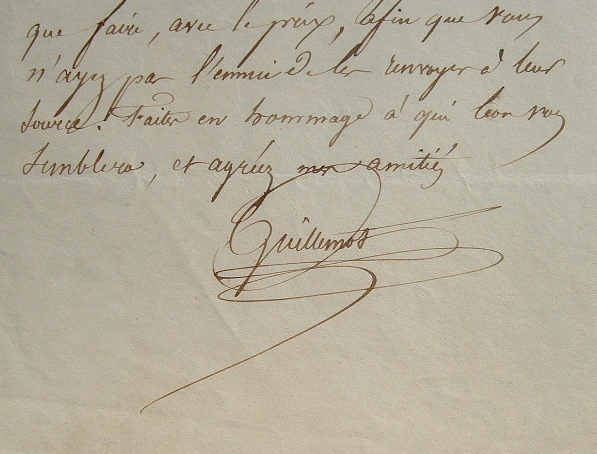 que faire, avec le prix, afin que vous
n'ayez pas l'ennui de les renvoyer à leur
source. Faites en hommage à qui bon vous
semblera, et agréez mes amitiés
Guillemot